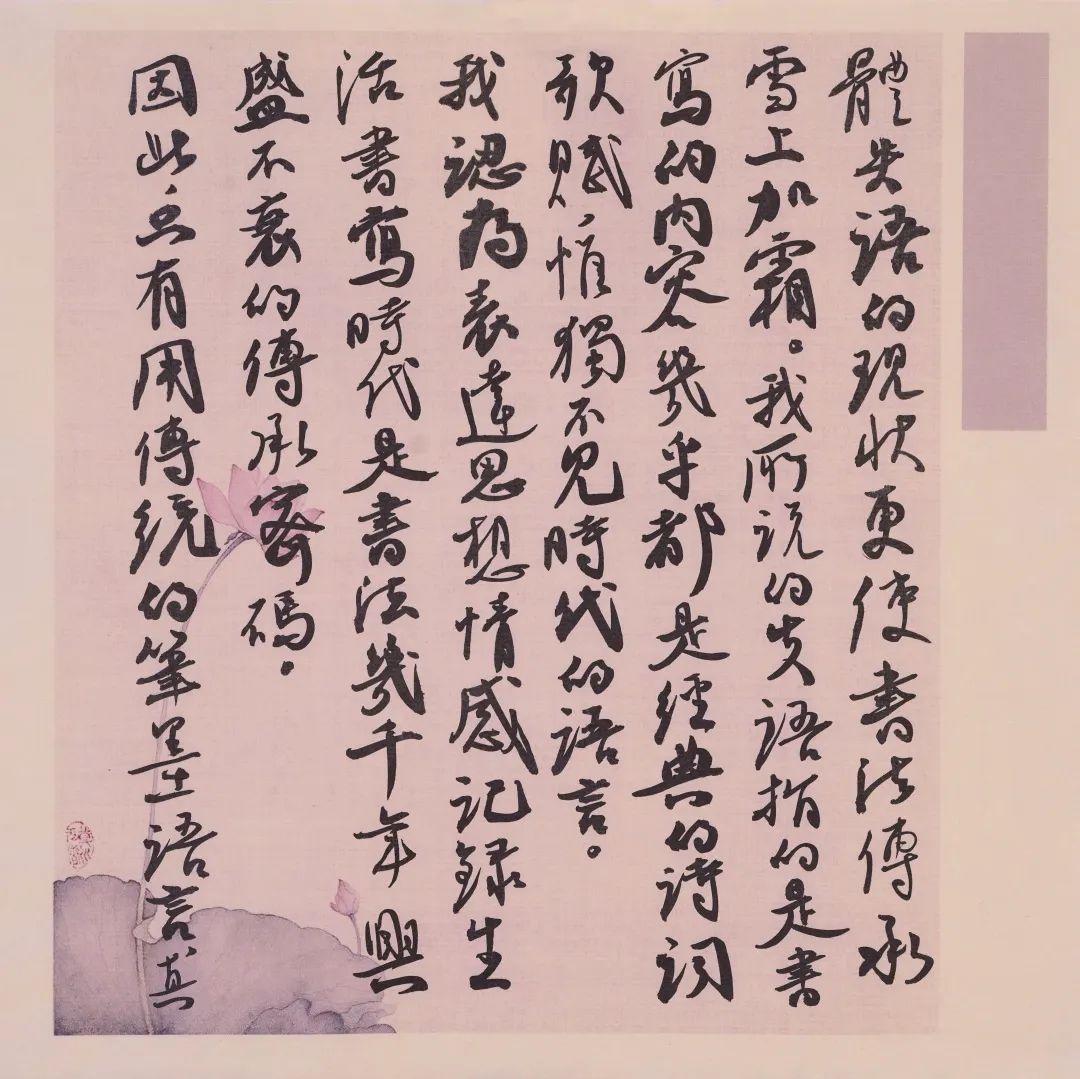 體失语的现状更使書法傳承
雪上加霜。我所说的失语指的是書
寫的内容幾乎都是經典的诗词
歌赋，惟獨不見時代的语言。
我認为表達思想情感记録生
活書寫時代是書法幾千年興
盛不衰的傳承密碼。
因此，只有用傳统的筆墨语言，真